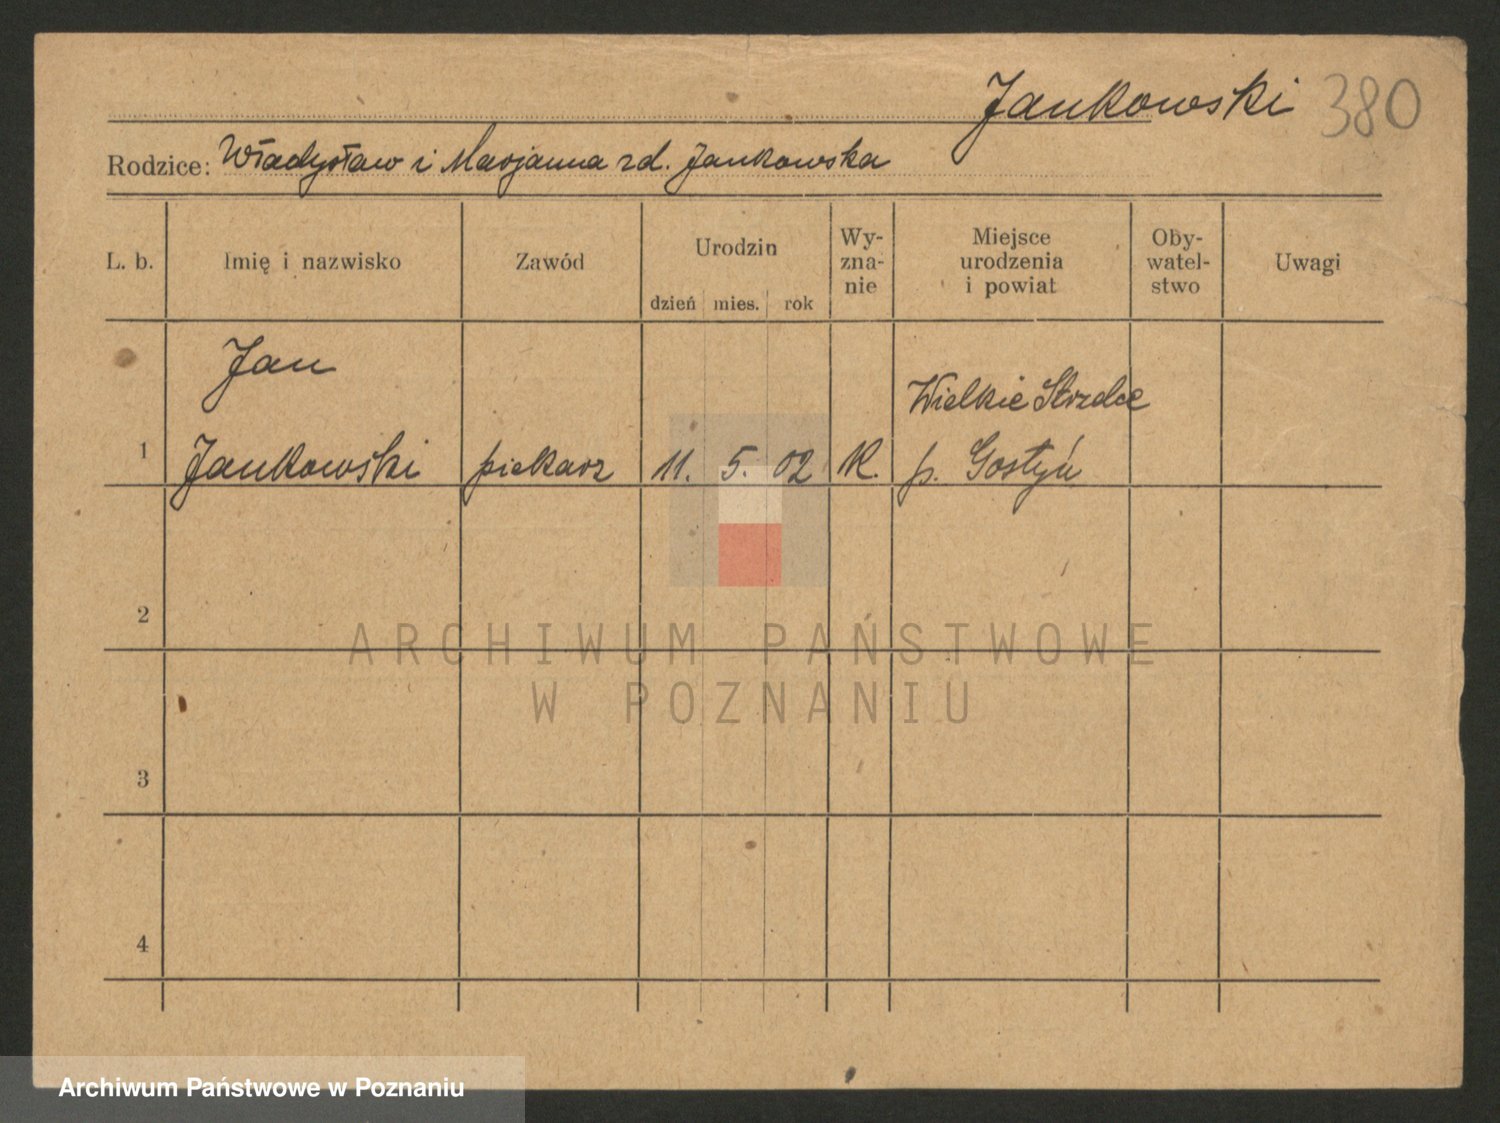 Jankowski 380
Rodzice: Władysław i Marjanna zd. Jankowska
L. b. Imię i nazwisko Zawód Urodzin dzień mies. rok Wy-zna-nie Miejsce urodzenia i powiat Oby-watel-stwo Uwagi
Jan
Wielkie Strzelce
1 Jankowski piekarz 11. 5. 02 K. p. Gostyń
2
ARCHIWUM PAŃSTWOWE
W POZNANIU
3
4
Archiwum Państwowe w Poznaniu